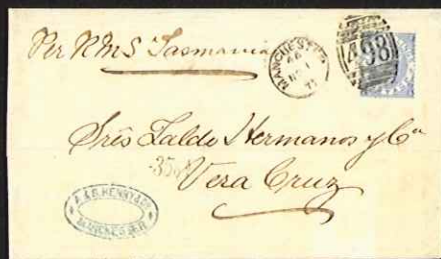 Per RMS Tasmania
MANCHESTER
498
Sres Calde Hermanos y Ca
Vera Cruz
A. & S. HENRY & Co
MANCHESTER